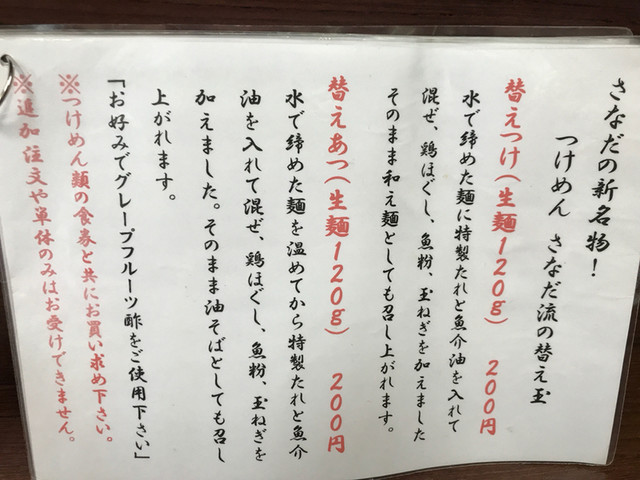 さなだの新名物!
つけめん さなだ流の替え玉
替えつけ(生麺120g) 200円
水で締めた麺に特製たれと魚介油を入れて
混ぜ、鶏ほぐし、魚粉、玉ねぎを加えました
そのまま和え麺としても召し上がれます。
替えあつ(生麺120g) 200円
水で締めた麺を温めてから特製たれと魚介
油を入れて混ぜ、鶏ほぐし、魚粉、玉ねぎを
加えました。そのまま油そばとしても召し
上がれます。
「お好みでグレープフルーツ酢をご使用下さい」
※つけめん類の食券と共にお買い求め下さい。
※追加注文や単体のみはお受けできません。